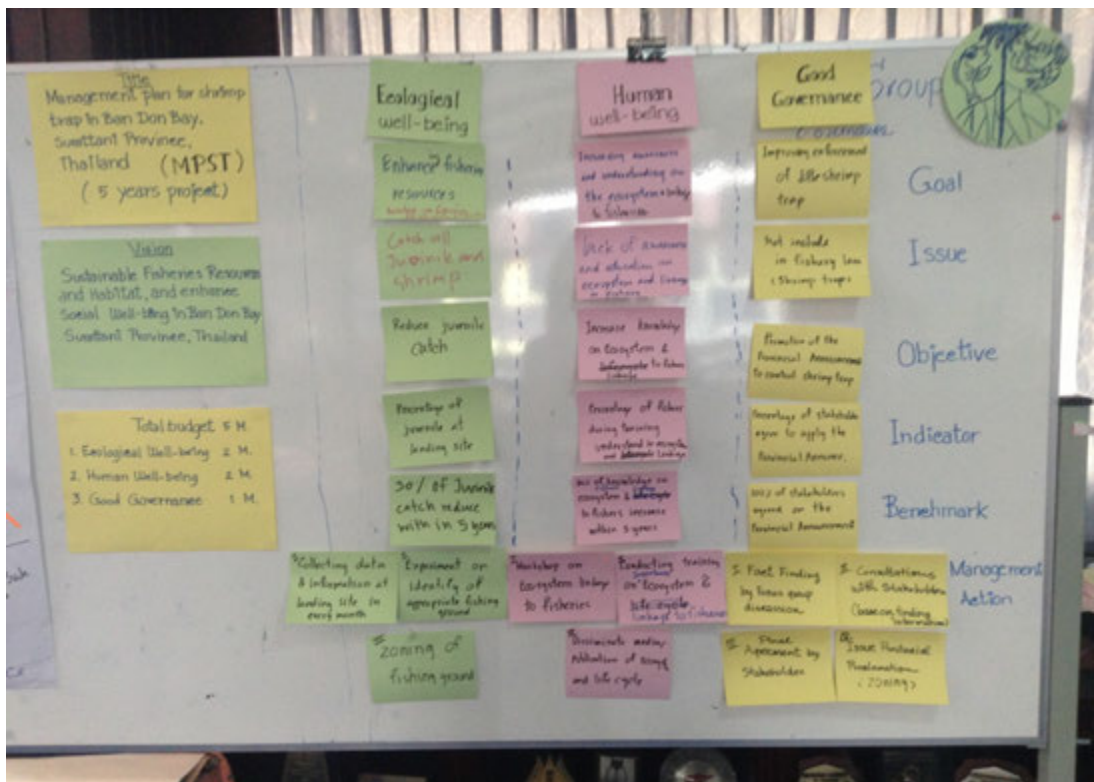 Title
Management plan for shrimp
trap in Ban Don Bay,
Surattani Province,
Thailand (MPST)
( 5 years project)
Vision
Sustainable Fisheries Resources
and Habitat, and enhance
Social Well-being in Ban Don Bay
Surattani Province, Thailand
Total budget 5 M.
1. Ecological Well-being 2 M.
2. Human Well-being 2 M.
3. Good Governance 1 M.
Ecological
well-being
Enhance fisheries
resources
Catch all
Juvinile and
shrimp
Reduce juvenile
catch
Percentage of
juvenile at
landing site
30% of Juvenile
catch reduce
with in 5 years
Collecting data
& information at
landing site in
every month
Experiment on
identify of
appropriate fishing
ground
zoning of
fishing ground
Human
well-being
Increasing awareness
and understanding on
the ecosystem
to fisheries
lack of awareness
and education on
ecosystem and
Increase knowledge
on Ecosystem &
to fishers
Percentage of fishers
during training
understand
and
knowledge on
ecosystem &
to fishers increase
within 5 years
Workshop on
Ecosystem linkage
to fisheries
Conducting training
on Ecosystem &
life cycle
and life cycle
Good
Governance
group
Improving enforcement
of shrimp
trap
Not include
in fishery law
(Shrimp traps)
Promotion of the
Provincial Announcement
to control shrimp trap
Percentage of stakeholder
agree to apply the
of stakeholders
agreed on the
Provincial Announcement
Fact Finding
by Focus group
discussion
Consultations
with Stakeholders
Agreement by
Stakeholders
Issue Provincial
Proclamation
(ZONING)
Goal
Issue
Objective
Indicator
Benchmark
Management
Action